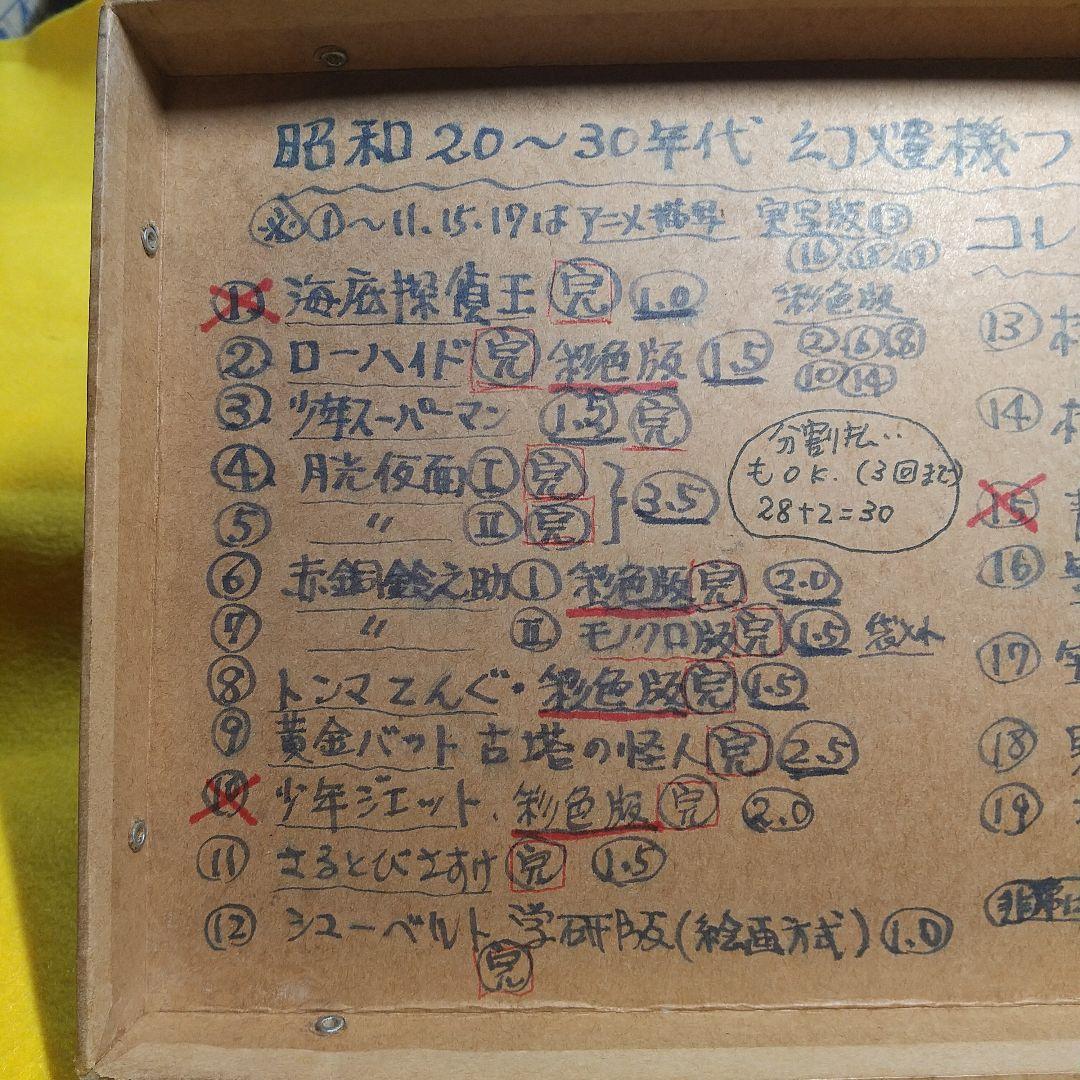 昭和20〜30年代 幻燈機フ
※①〜11.15.17はアニメ描写 実写版⑬
⑯.⑱.⑲
コレ
彩色版
②⑥⑧
⑩⑭
① 海底探偵王 完 1.0
② ローハイド 完 彩色版 1.5
③ 少年スーパーマン 1.5 完
④ 月光仮面 Ⅰ 完
⑤ 〃 Ⅱ 完
3.5
分割払..
もOK.(3回まで)
28+2=30
⑥ 赤銅鈴之助Ⅰ 彩色版 完 2.0
⑦ 〃 Ⅱ モノクロ版 完 1.5 袋入
⑧ トンマてんぐ・彩色版 完 1.5
⑨ 黄金バット 古塔の怪人 完 2.5
⑩ 少年ジェット. 彩色版 完 2.0
⑪ さるとびさすけ 完 1.5
⑫ シューベルト 学研版(絵画方式) 1.0
完
⑬
⑭
⑮
⑯
⑰
⑱
⑲